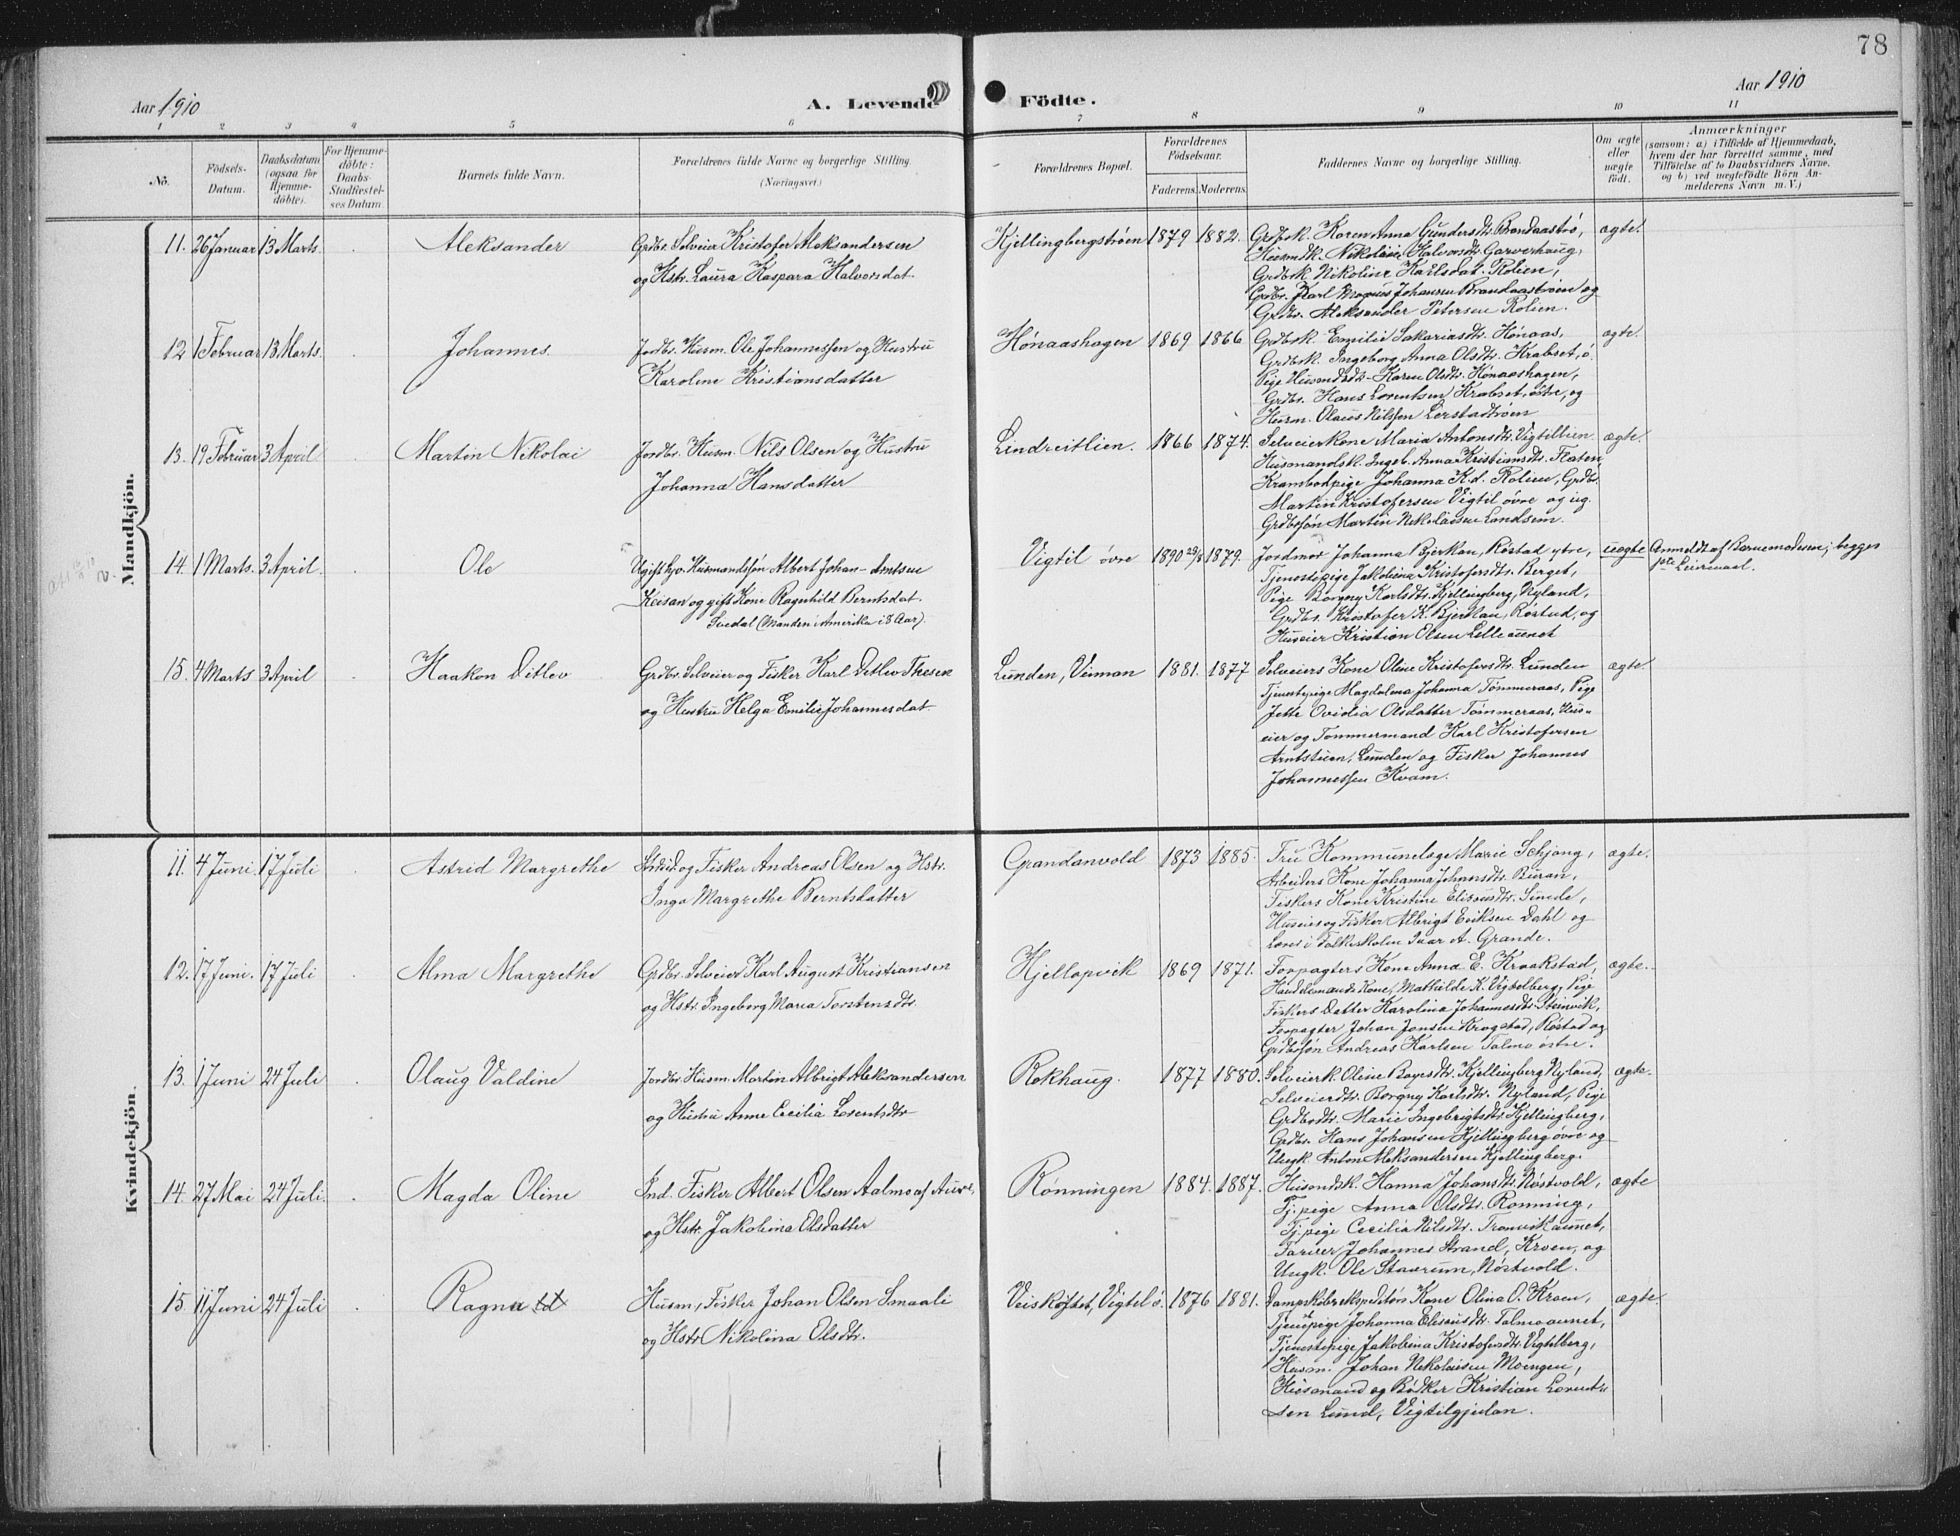 78
Aar 1910
A. Levende Födte.
Aar 1910
1 2 3 4 5 6 7 8 9 10 11
No.
Födsels-Datum.
Daabsdatum (ogsaa for Hjemme-döbte).
For Hjemme-döbte: Daabs-Stadfæstel-ses Datum
Barnets fulde Navn.
Forældrenes fulde Navne og borgerlige Stilling.
(Næringsvei.)
Forældrenes Bopæl.
Forældrenes Födselsaar.
Faderens. Moderens.
Faddernes Navne og borgerlige Stilling.
Om ægte eller uægte födt.
Anmærkninger
(saasom: a) i Tilfælde af Hjemmedaab,
hvem der har forrettet samme, med
Tilföielse af to Daabsvidners Navne,
og b) ved uægtefödte Börn An-
melderens Navn m. V.)
Mandkjön.
11. 26 Januar 13 Marts. Aleksander
Grdbr. Selveier Kristofer Aleksandersen
og Hstr. Laura Kaspara Halvorsdat.
Kjellingbergstrøen 1879 1882.
Grdbsk. Karen Anna Gundersdtr. Brandaastrø,
Husmdk. Nikoline Halvorsdtr. Garverhaug,
Grdbrk Nikoline Karlsdat. Rolien,
Grdbr. Karl Magnus Johansen Brandaastrøen og
Grdbr. Aleksander Petersen Rolien.
ægte.
12 1 Februar 13 Marts. Johannes.
Jordbr. Husm. Ole Johannessen og Hustru
Karoline Kristiansdatter
Hønaashagen 1869 1866
Grdbrk. Emilie Sakariasdtr. Hønaas,
Grdbrk. Ingeborg Anna Olsdtr. Krabset, ø.
Pige Husmdsdt. Karen Olsdtr. Hønaashagen,
Grdbr. Hans Lorentsen Krabset, østre, og
Husm. Olaus Nilssen Lerstadtrøen
ægte.
13. 19 Februar 3 April Martin Nikolai
Jordbr. Husm. Nils Olsen og Hustru
Johanna Hansdatter
Lindreitlien. 1866 1874.
Selveierkone Maria Antonsdtr. Vigtillien
Husmandsk. Ingeb. Anna Kristiansdtr. Flaten,
Krambodpige Johanna K.d. Rolien, Grdbr.
Martin Kristofersen Vigtil øvre og ug.
Grdbrsøn Martin Nikolaisen Landsem.
ægte.
14. 1 Marts. 3 April. Ole
Ugift Husmandssøn Albert Johan Arntsen
Keisan og gift Kone Ragnhild Berntsdat.
Svedal (Manden i Amerika i 8 Aar).
Vigtil øvre 1890 29/8 1879.
Jordmor Johanna Bjerkan, Røstad ytre,
Tjenestepige Jakobina Kristofersdtr. Berget,
Pige Borgny Karlsdtr. Kjellingberg, Nyland,
Grdbr. Kristofer K. Bjerkan, Røstad, og
Huseier Kristian Olsen Lilleaunet
uægte
Anmeldt af Barnemoderen; begges
Leiermaal.
15. 4 Marts 3 April Haakon Ditlev
Grdbr. Selveier og Fisker Karl Ditlev Thesen
og Hustru Helga Emilie Johannesdat.
Lunden, Veiman 1881. 1877
Selveiers Kone Oline Kristofersdtr. Lunden
Tjenestepige Magdalena Johanna Tømmeraas, Pige
Jette Ovidia Olsdatter Tømmeraas, Hus-
eier og Tømmermand Karl Kristofersen
Arntstuen, Lunden og Fisker Johannes
Johannessen Kvam.
ægte.
Kvindekjön.
11. 4 Juni. 17 Juli Astrid Margrethe
og Fisker Andreas Olsen og Hstr.
Inga Margrethe Berntsdatter
Grandanvold 1873 1885.
Fru Kommunelæge Marie Schjong,
Arbeiders Kone Johanna Johansdtr. Buran,
Fiskers Kone Kristine Eliseusdtr. Sunde,
Huseier og Fisker Albrigt Eriksen Dahl og
Lærer i Folkeskolen Ivar A. Grande.
ægte.
12. 17 Juni. 17 Juli Alma Margrethe
Grdbr. Selveier Karl August Kristiansen
og Hstr. Ingeborg Maria Torstensdtr.
Hjellopvik 1869 1871.
Forpagters Kone Anna E. Kraakstad,
Handelsmands Kone, Mathilde K. Vigtelberg, Pige
Fiskers Datter Karolina Johannesdtr. Steinvik,
Forpagter Johan Jonsen Krogstad, Røstad og
Grdbrsøn Andreas Karlsen Talmo østre.
ægte.
13. 1 Juni 24 Juli Olaug Valdine
Jordbr. Husm. Martin Albrigt Aleksandersen
og Hustru Anne Cecilia Lorentsdtr.
Rokhaug. 1877 1880.
Selveierk. Oline Boyesdtr. Kjellingberg Nyland,
Selveierdtr. Borgny Karlsdtr. Nyland, Pige
Grdbrdtr. Marie Ingebrigtsdtr. Kjellingberg,
Grdbr. Hans Johansen Kjellingberg øvre og
Ungk. Anton Aleksandersen Kjellingberg.
ægte.
14. 27 Mai 24 Juli. Magda Oline
Ind. Fisker Albert Olsen Aalmo af Aure,
og Hstr. Jakobina Olsdatter
Rønningen 1884. 1887.
Husmdsk. Hanna Johansdtr. Nøstvold,
Tj.pige Anna Olsdtr. Rønning,
Tj.pige Cecilia Nilsdtr. Tronvikaunet,
Farver Johannes Strand, Kroen, og
Ungk. Ole Staurum, Nøstvold.
ægte
15. 11 Juni 24 Juli Ragna
Husm., Fisker Johan Olsen Smaali
og Hstr. Nikolina Olsdtr.
Veiskiftet, Vigtel ø. 1876 1881.
Dampskibsekspeditørs Kone Olina O. Kroen,
Tjenepige Johanna Eliseusdtr. Talmoaunet,
Tjenestepige Jakobina Kristofersdtr. Vigtelberg,
Husm. Johan Nikolaisen Moengen,
Husmand og Bødker Kristian Lorent-
sen Lund, Vigtilgjelan.
ægte.